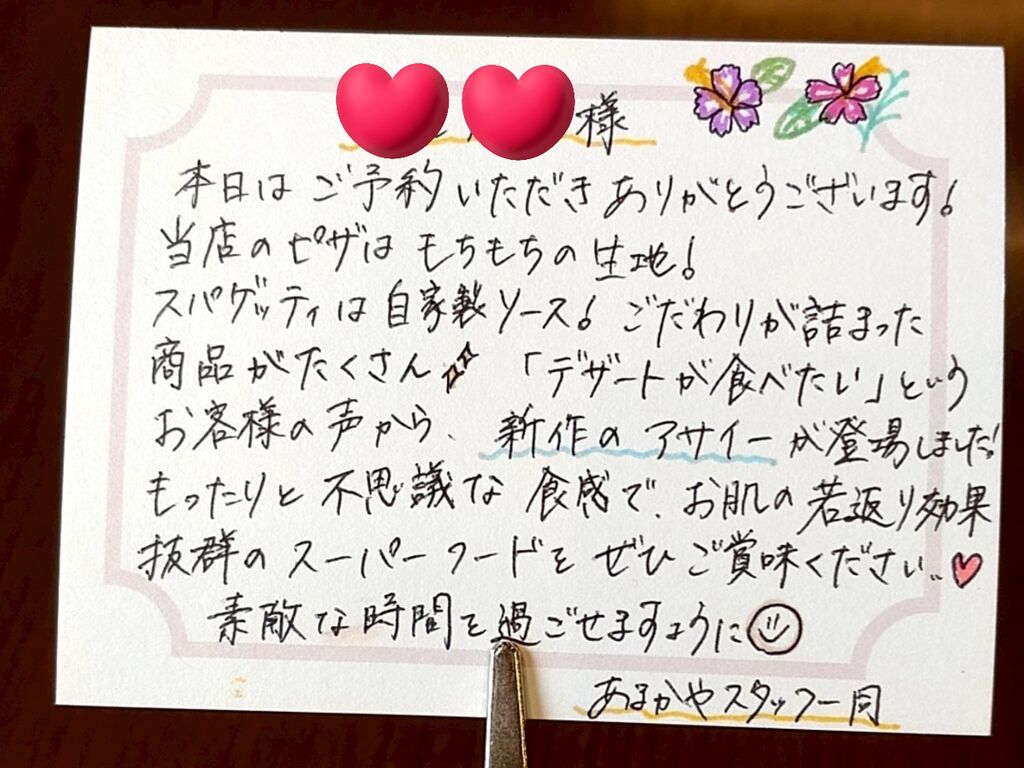 様
本日は ご予約 いただき ありがとうございます!
当店の ピザは もちもちの 生地!
スパゲッティは 自家製 ソース! こだわりが 詰まった
商品が たくさん 「デザートが 食べたい」という
お客様の 声から、 新作の アサイーが 登場しました!
もったりと 不思議な 食感で、お肌の 若返り効果
抜群の スーパーフードを ぜひ ご賞味ください..
素敵な 時間を 過ごせますように
あまかやスタッフ一同